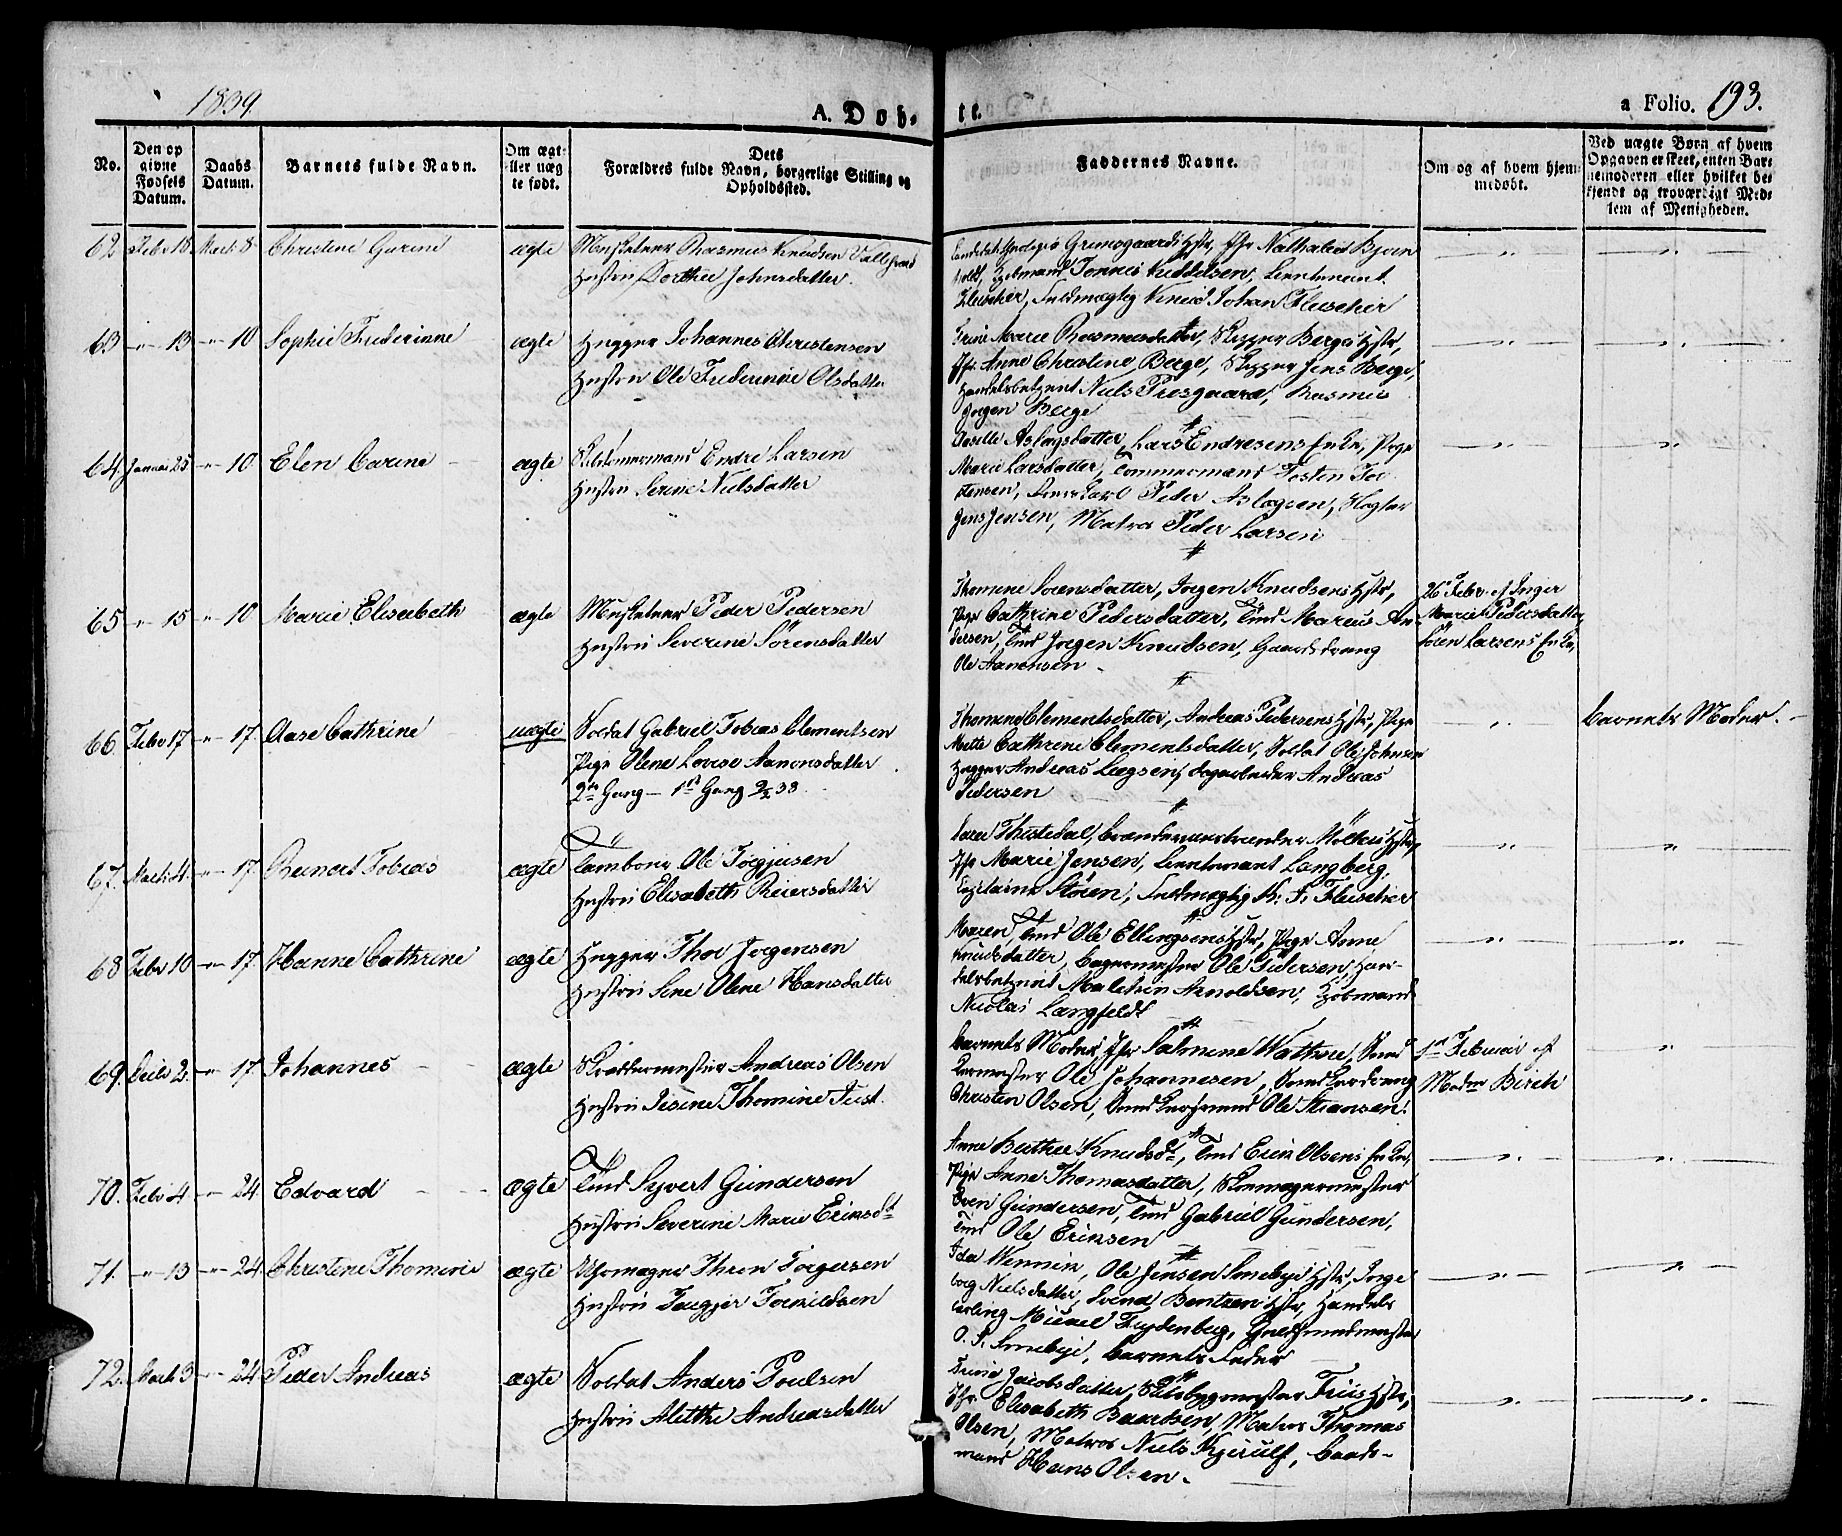 1839.
A. Døb-
te.
a Folio. 193.
No.
Den op
givne
Fødsels
Datum.
Daabs
Datum.
Barnets fulde Navn.
Om ægt-
eller uæg
te født.
Dets
Forældres fulde Navn, borgerlige Stilling og
Opholdssted.
Faddernes Navne.
Om og af hvem hjem-
medøbt.
Ved uægte Børn af hvem
Opgaven er skeet, enten Bar-
nemoderen eller hvilket be-
kjendt og troværdigt Med-
lem af Menigheden.
62 Febr 10 Marts 8 Christine Gurine ægte Musketeer Rasmus Knudsen
Hustru Dorthe Johnsdatter.
Kjøbmand Lieutenant
Fleischer, Fuldmægtig Knud Johan Fleischer
63 -"- 13 -"- 10 Sophie Frederikke ægte Johannes Christensen
Hustru Ole Frederikke Olsdatter
Trine Marie Rasmusdatter, Skipper Berges Hstr,
Jfr. Anne Christine Berge, Skipper Jens Berge,
Handelsbetjent Niels Presgaard, Rasmus
Jørgen Berge
64. Januar 25 -"- 10 Elen Carine ægte Endre Larsen
Hustru Serine Nielsdatter
Aslagsdatter, Lars Endresens Enke, Pige
Marie Larsdatter, Tømmermand Tosten Tor
stensen, Peder Aslagsen,
Jens Jensen, Matros Peder Larsen
65 -"- 15 -"- 10 Marie Elisabeth ægte Musketeer Peder Pedersen
Hustru Severine Sörensdatter
Thomine Sörensdatter, Jørgen Knudsens Hstr,
Pige Cathrine Pedersdatter, Tind Marcus An-
dersen, Tind Jørgen Knudsen, Gaardsdreng
Ole Aanensen
26 Febr. af Inger
Marie Pedersdatter
Sören Larsens Enke,
66. Febr 17 -"- 17. Aase Cathrine uægte Soldat Gabriel Tobias Clementsen
Pige Olene Lovise Aanonsdatter
2den Gang - 1ste Gang 33
Thomine Clementsdatter, Andreas Pedersens Hstr, Pige
Mette Cathrine Clementsdatter, Soldat Ole Johnsen
Andreas Dagarbeider Andreas
Pedersen
Barnets Moder.
67. Marts 4. -"- 17. Reinert Tobias ægte Tambour Ole Torgjusen
Hustru Elisabeth Reiersdatter
Thistedal, Hstr,
Jfr Marie Jensen, Lieutenant Langberg,
Capitaine Støren, Fuldmægtig K. J. Fleischer
68 Febr 10 -"- 17. Hanne Cathrine ægte Thor Jørgensen
Hustru Sene Olene Hansdatter
Maren Tind Ole Ellingsens Hstr, Pige Anne
Knudsdatter, Bagermester Ole Pedersen, Han-
delsbetjent Arnoldsen, Kjøbmand
Nicolai Langfeldt
69. 2. -"- 17. Johannes ægte Skræddermester Andreas Olsen
Hustru Thomine
Barnets Moder, Jfr Salmine Wathne, Sned
kermester Ole Johannesen, Snedkerdreng
Christen Olsen, Snedkersvend Ole Stiansen.
1ste Februar af
Madm Birch
70. Febr 4 -"- 24. Edvard ægte Tind Sejvert Gundersen
Hustru Severine Marie Eriksdt
Anne Berthe Knudsdt, Tind Erik Olsens Enke,
Pige Anne Thomasdatter, Skomagermester
Even Gundersen, Tind Gabriel Gundersen,
Tind Ole Eriksen
71. -"- 13 -"- 24. Christine Thomine ægte Uhrmager Thren Torgersen
Hustru
Ida Ole Jensen Smebyes Hstr, Inge
borg Nielsdatter, Svend Bentzen Hstr, Handels
Mickel Frydenberg, Guldsmedmester
O. J. Smebye, Barnets Fader
72. Marts 3 -"- 24. Peder Andreas ægte Soldat Anders Poulsen
Hustru Alethe Andreasdatter
Jacobsdatter, Skibsbygmester Friis Hstr,
Jfr. Elisabeth Baardsen, Matros Thomas
Olsen, Matros Niels Kjerulf, Baads-
mand Hans Olsen.